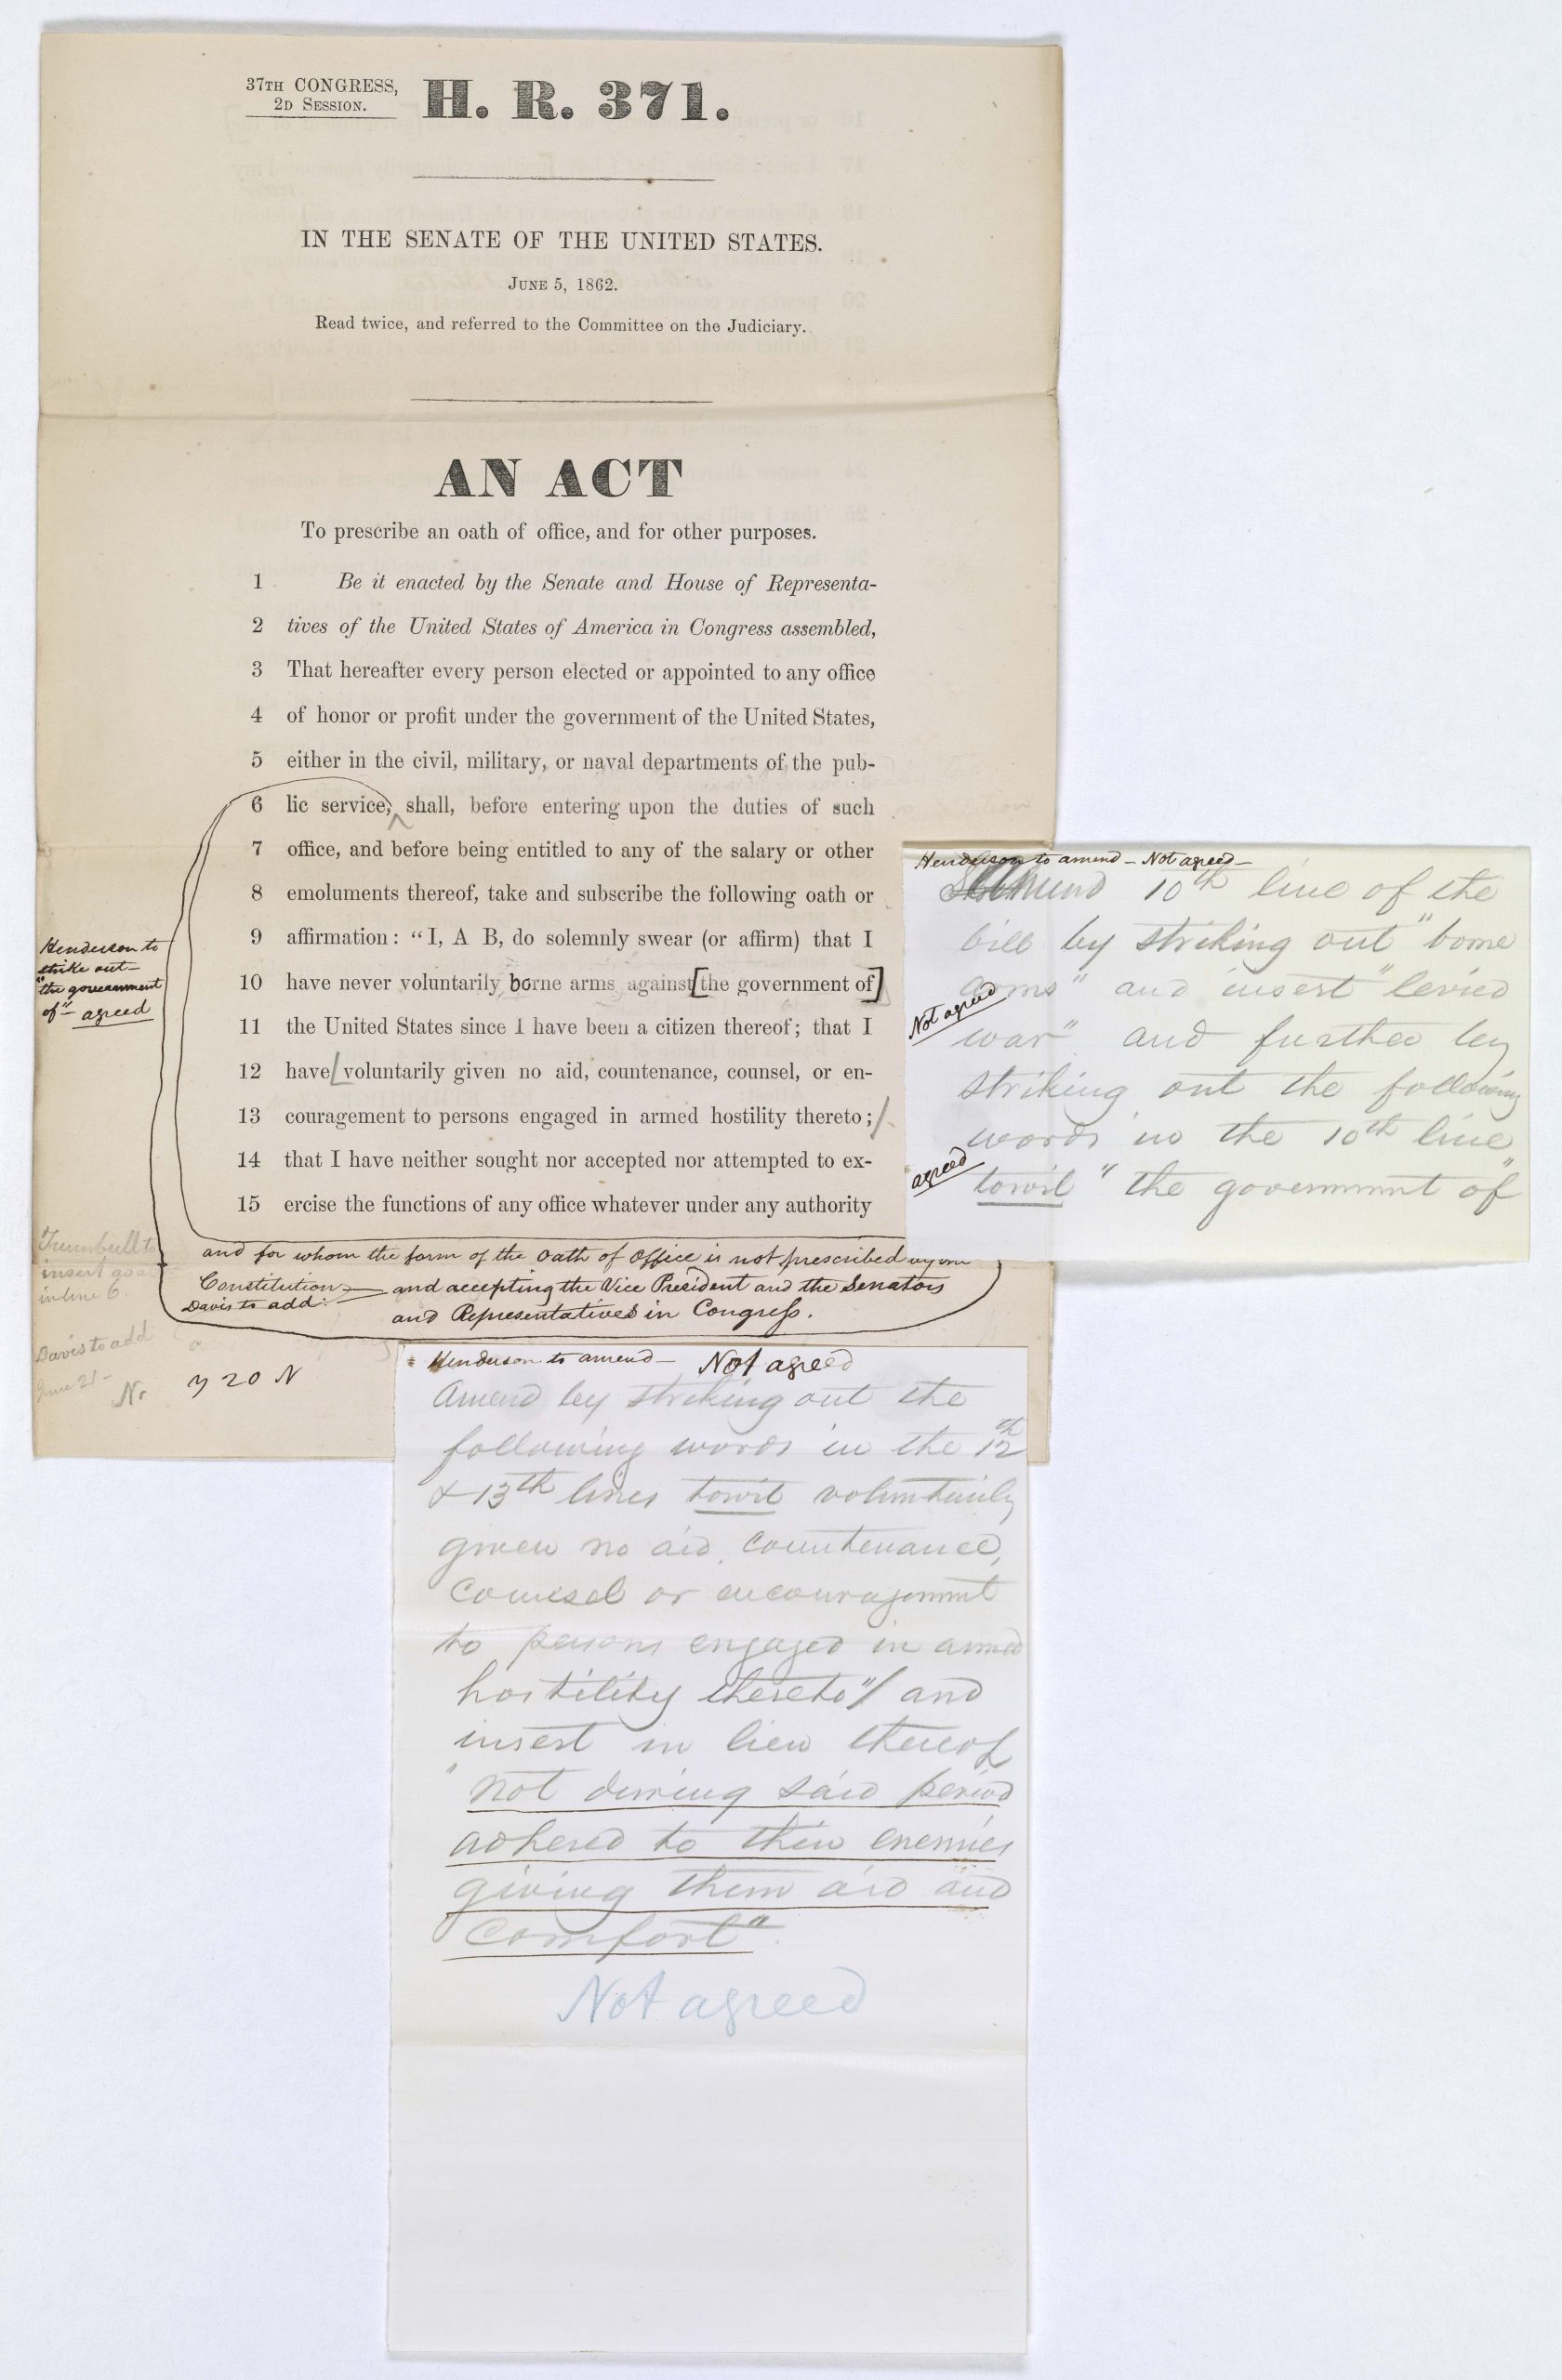 37TH CONGRESS,
2D SESSION.
H. R. 371.
IN THE SENATE OF THE UNITED STATES.
JUNE 5, 1862.
Read twice, and referred to the Committee on the Judiciary.
AN ACT
To prescribe an oath of office, and for other purposes.
1 Be it enacted by the Senate and House of Representa-
2 tives of the United States of America in Congress assembled,
3 That hereafter every person elected or appointed to any office
4 of honor or profit under the government of the United States,
5 either in the civil, military, or naval departments of the pub-
6 lic service, shall, before entering upon the duties of such
7 office, and before being entitled to any of the salary or other
8 emoluments thereof, take and subscribe the following oath or
9 affirmation: "I, A B, do solemnly swear (or affirm) that I
10 have never voluntarily borne arms against [the government of]
11 the United States since I have been a citizen thereof; that I
12 have voluntarily given no aid, countenance, counsel, or en-
13 couragement to persons engaged in armed hostility thereto;
14 that I have neither sought nor accepted nor attempted to ex-
15 ercise the functions of any office whatever under any authority
Henderson to
strike out—
"the government
of"— agreed
Trumbull to
insert
in line 6.
and for whom the form of the oath of office is not prescribed
Constitution — and accepting the Vice President and the Senators
Davis to add:—
and Representatives in Congress.
Davis to add
June 21 —
20 N
Henderson to amend — Not agreed —
Amend 10th line of the
bill by striking out "borne
arms" and insert "levied
Not agreed
war" and further by
striking out the following
words in the 10th line,
agreed
towit "the government of"
Henderson to amend — Not agreed
Amend by striking out the
following words in the 12th
& 13th lines towit voluntarily
given no aid, countenance,
counsel or encouragement
to persons engaged in armed
hostility thereto" and
insert in lieu thereof
"not during said period
adhered to their enemies
giving them aid and
comfort"
Not agreed